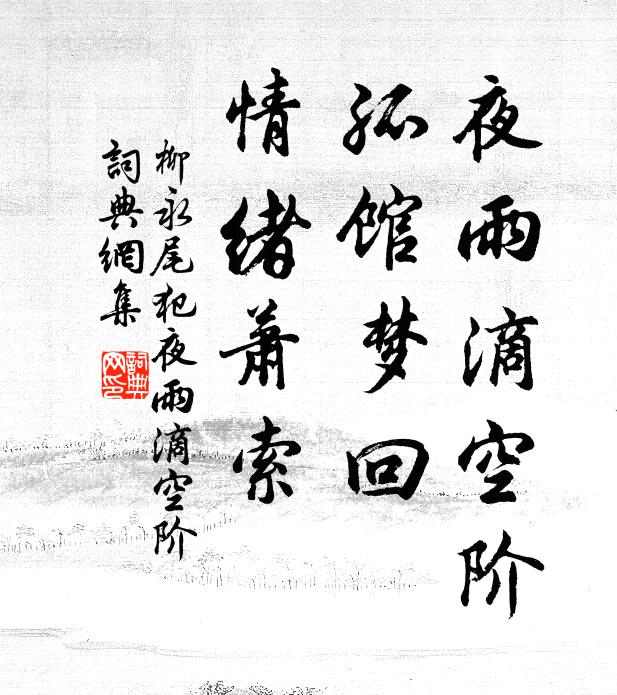 夜雨滴空阶
孤馆梦回
情绪萧索
柳永尾犯夜雨滴空阶
詞典網集
詞典网印